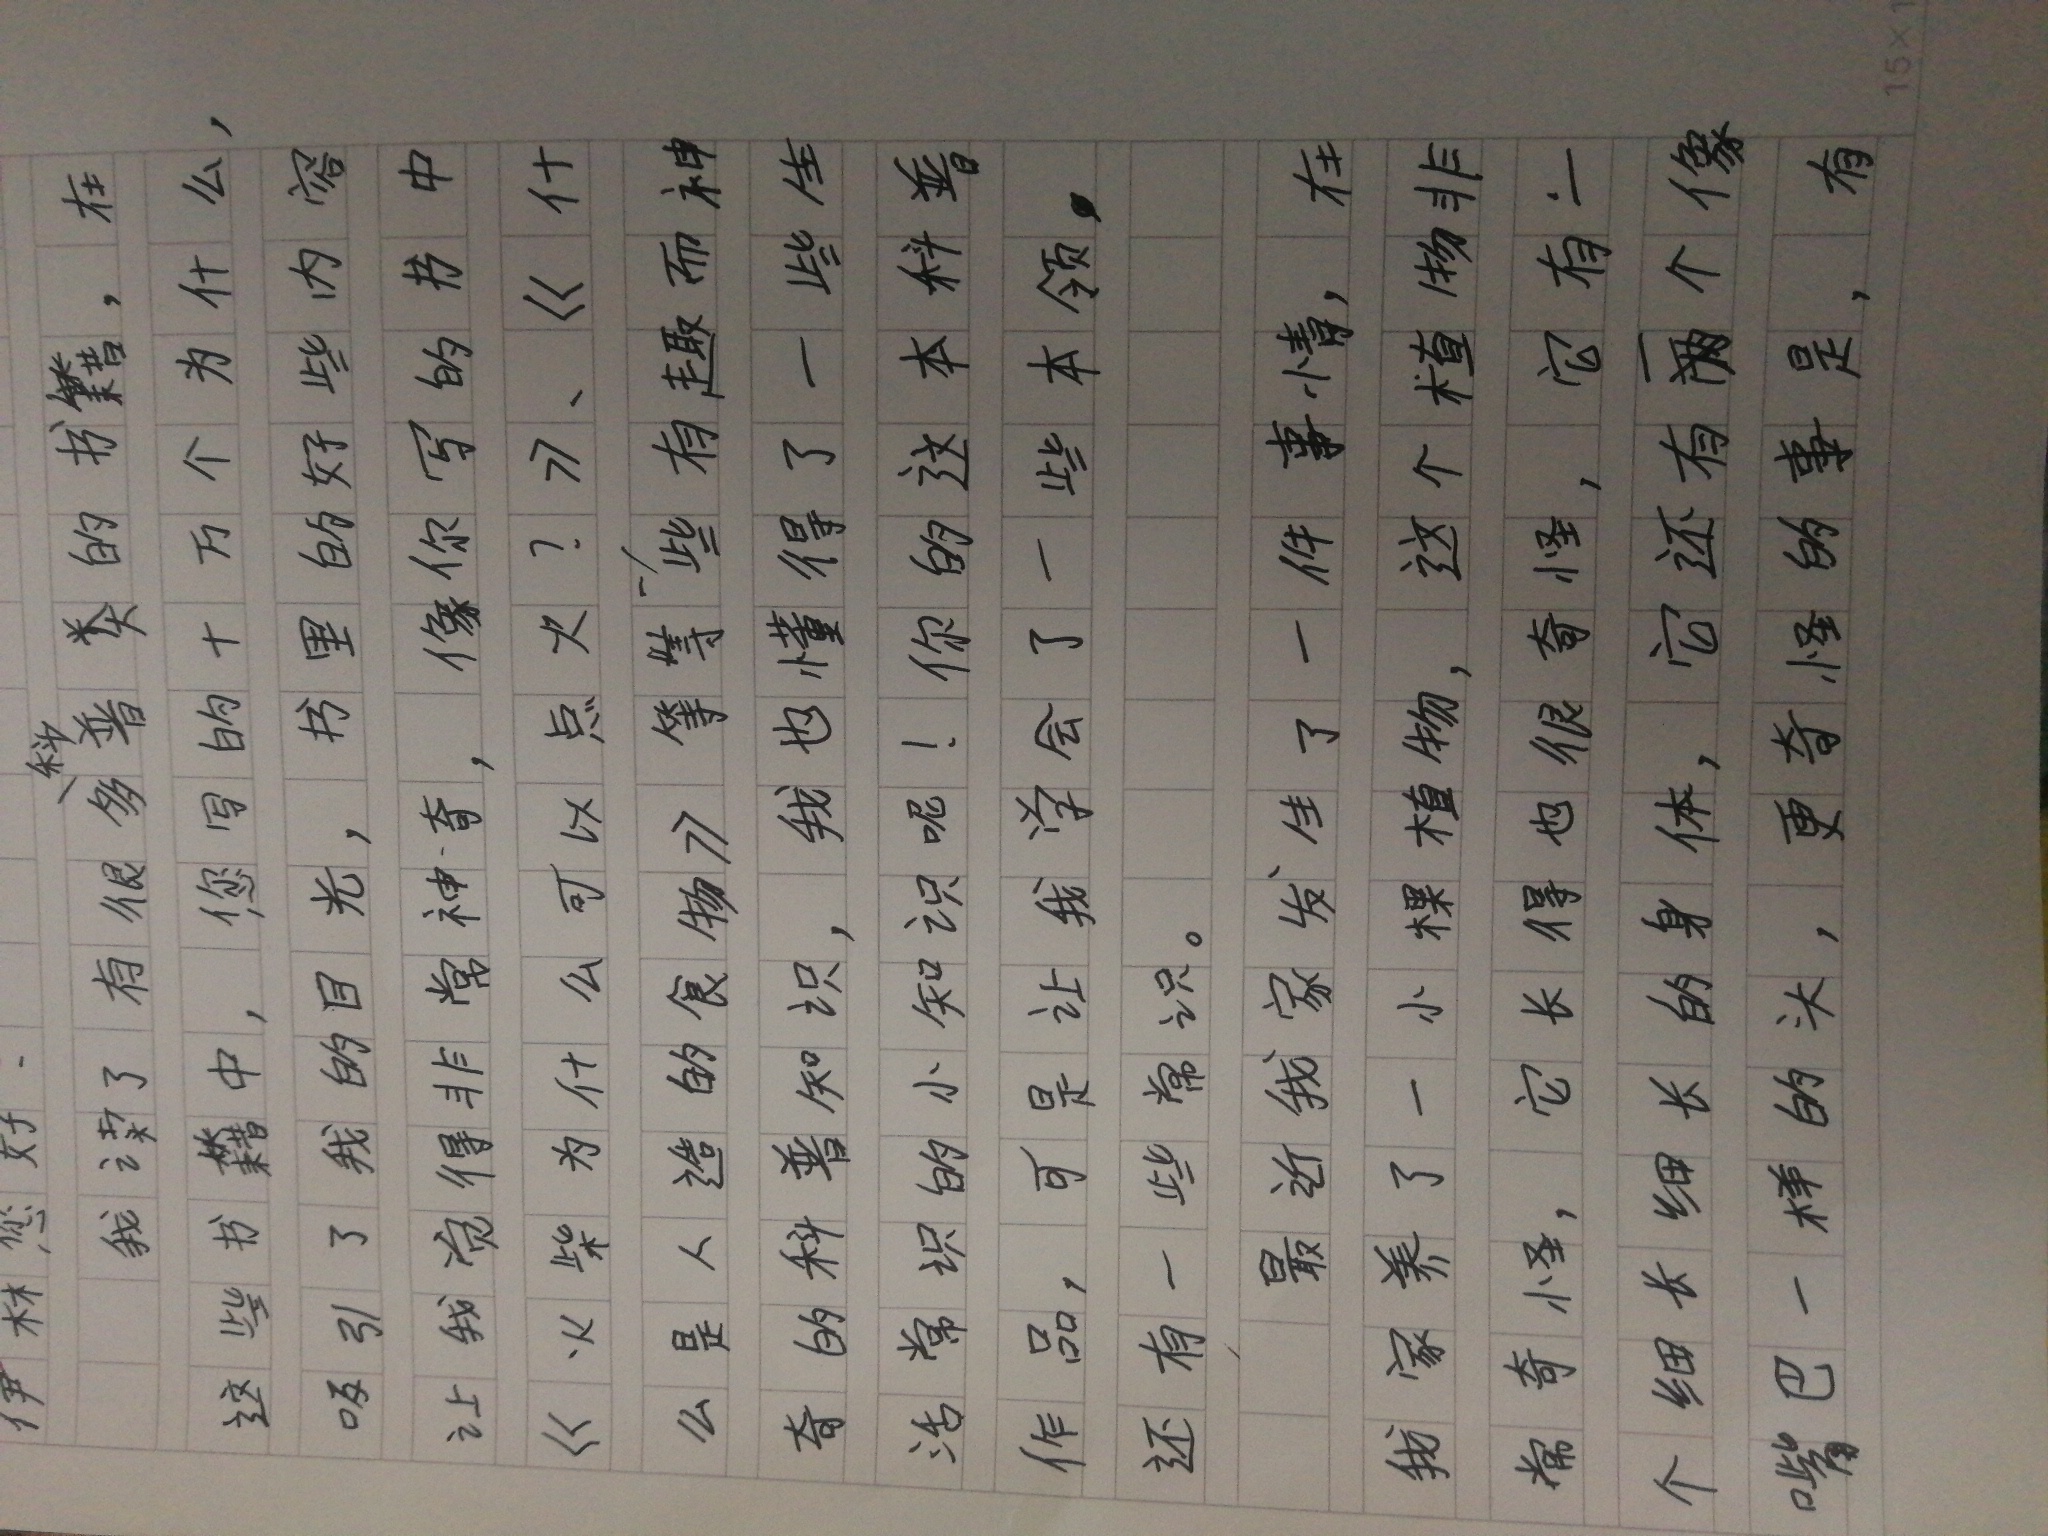 伊林您好.
我读了有很多科普类的书籍,在
这些书籍中,您写的十万个为什么,
吸引了我的目光,书里的好些内容
让我觉得非常神奇,像你写的书中
《火柴为什么可以点火?》、《什
么是人造的食物》等等一些有趣而神
奇的科普知识,我也懂得了一些生
活常识的小知识呢!你的这本科普
作品,可是让我学会了一些本领,
还有一些常识。
最近我家发生了一件事情,在
我家养了一小棵植物,这个植物非
常奇怪,它长得也很奇怪,它有一
个细长细长的身体,它还有两个像
嘴巴一样的头,更奇怪的事是,有
15×1